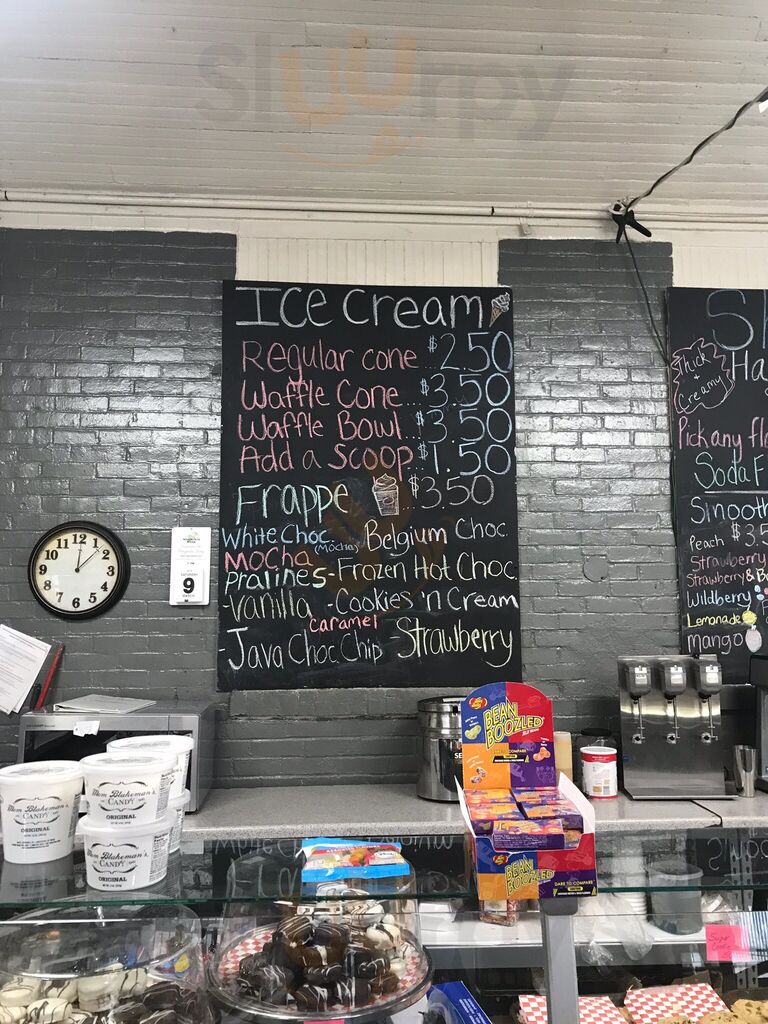 Sluurpy
ICE Cream
Regular cone $2.50
Waffle Cone...$3.50
Waffle Bowl...$3.50
Add a scoop...$1.50
Frappe $3.50
White Choc. (Mocha) Belgium Choc
Mocha
Pralines - Frozen Hot Choc.
-Vanilla -Cookies 'n Cream
caramel
-Java Choc Chip Strawberry
Thick
+
Creamy
Pick any
Soda
Peach $3.5
Strawberry
Wildberry
Lemonade
Mango
12
1
2
3
4
5
6
7
8
9
10
11
9
BEAN
BOOZLED
DARE TO COMPARE
Mom Blakeman's
CANDY
ORIGINAL
Mom Blakeman's
CANDY
ORIGINAL
Mom Blakeman's
CANDY
ORIGINAL
BEAN
BOOZLED
DARE TO COMPARE